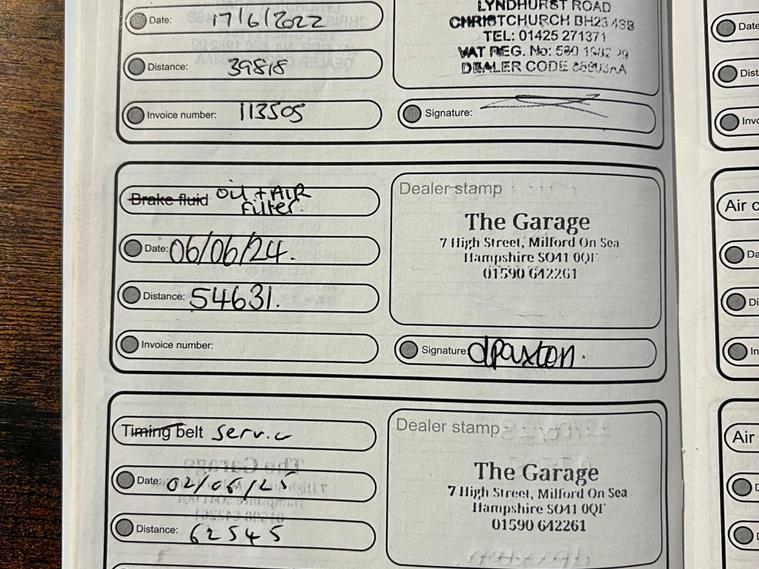 LYNDHURST ROAD
CHRISTCHURCH BH23 4SB
TEL: 01425 271371
VAT REG. No: 580
DEALER CODE
Date: 17/6/2022
Distance: 39818
Invoice number: 113505
Signature:
Brake fluid oil + AIR
Filter.
Date: 06/06/24.
Distance: 54631.
Invoice number:
Dealer stamp
The Garage
7 High Street, Milford On Sea
Hampshire SO41 0QF
01590 642261
Signature: dpaxton.
Timing belt Service
Date: 02/06/25
Distance: 62545
Dealer stamp
The Garage
7 High Street, Milford On Sea
Hampshire SO41 0QF
01590 642261
Date
Dist
Invo
Air c
Da
Di
In
Air